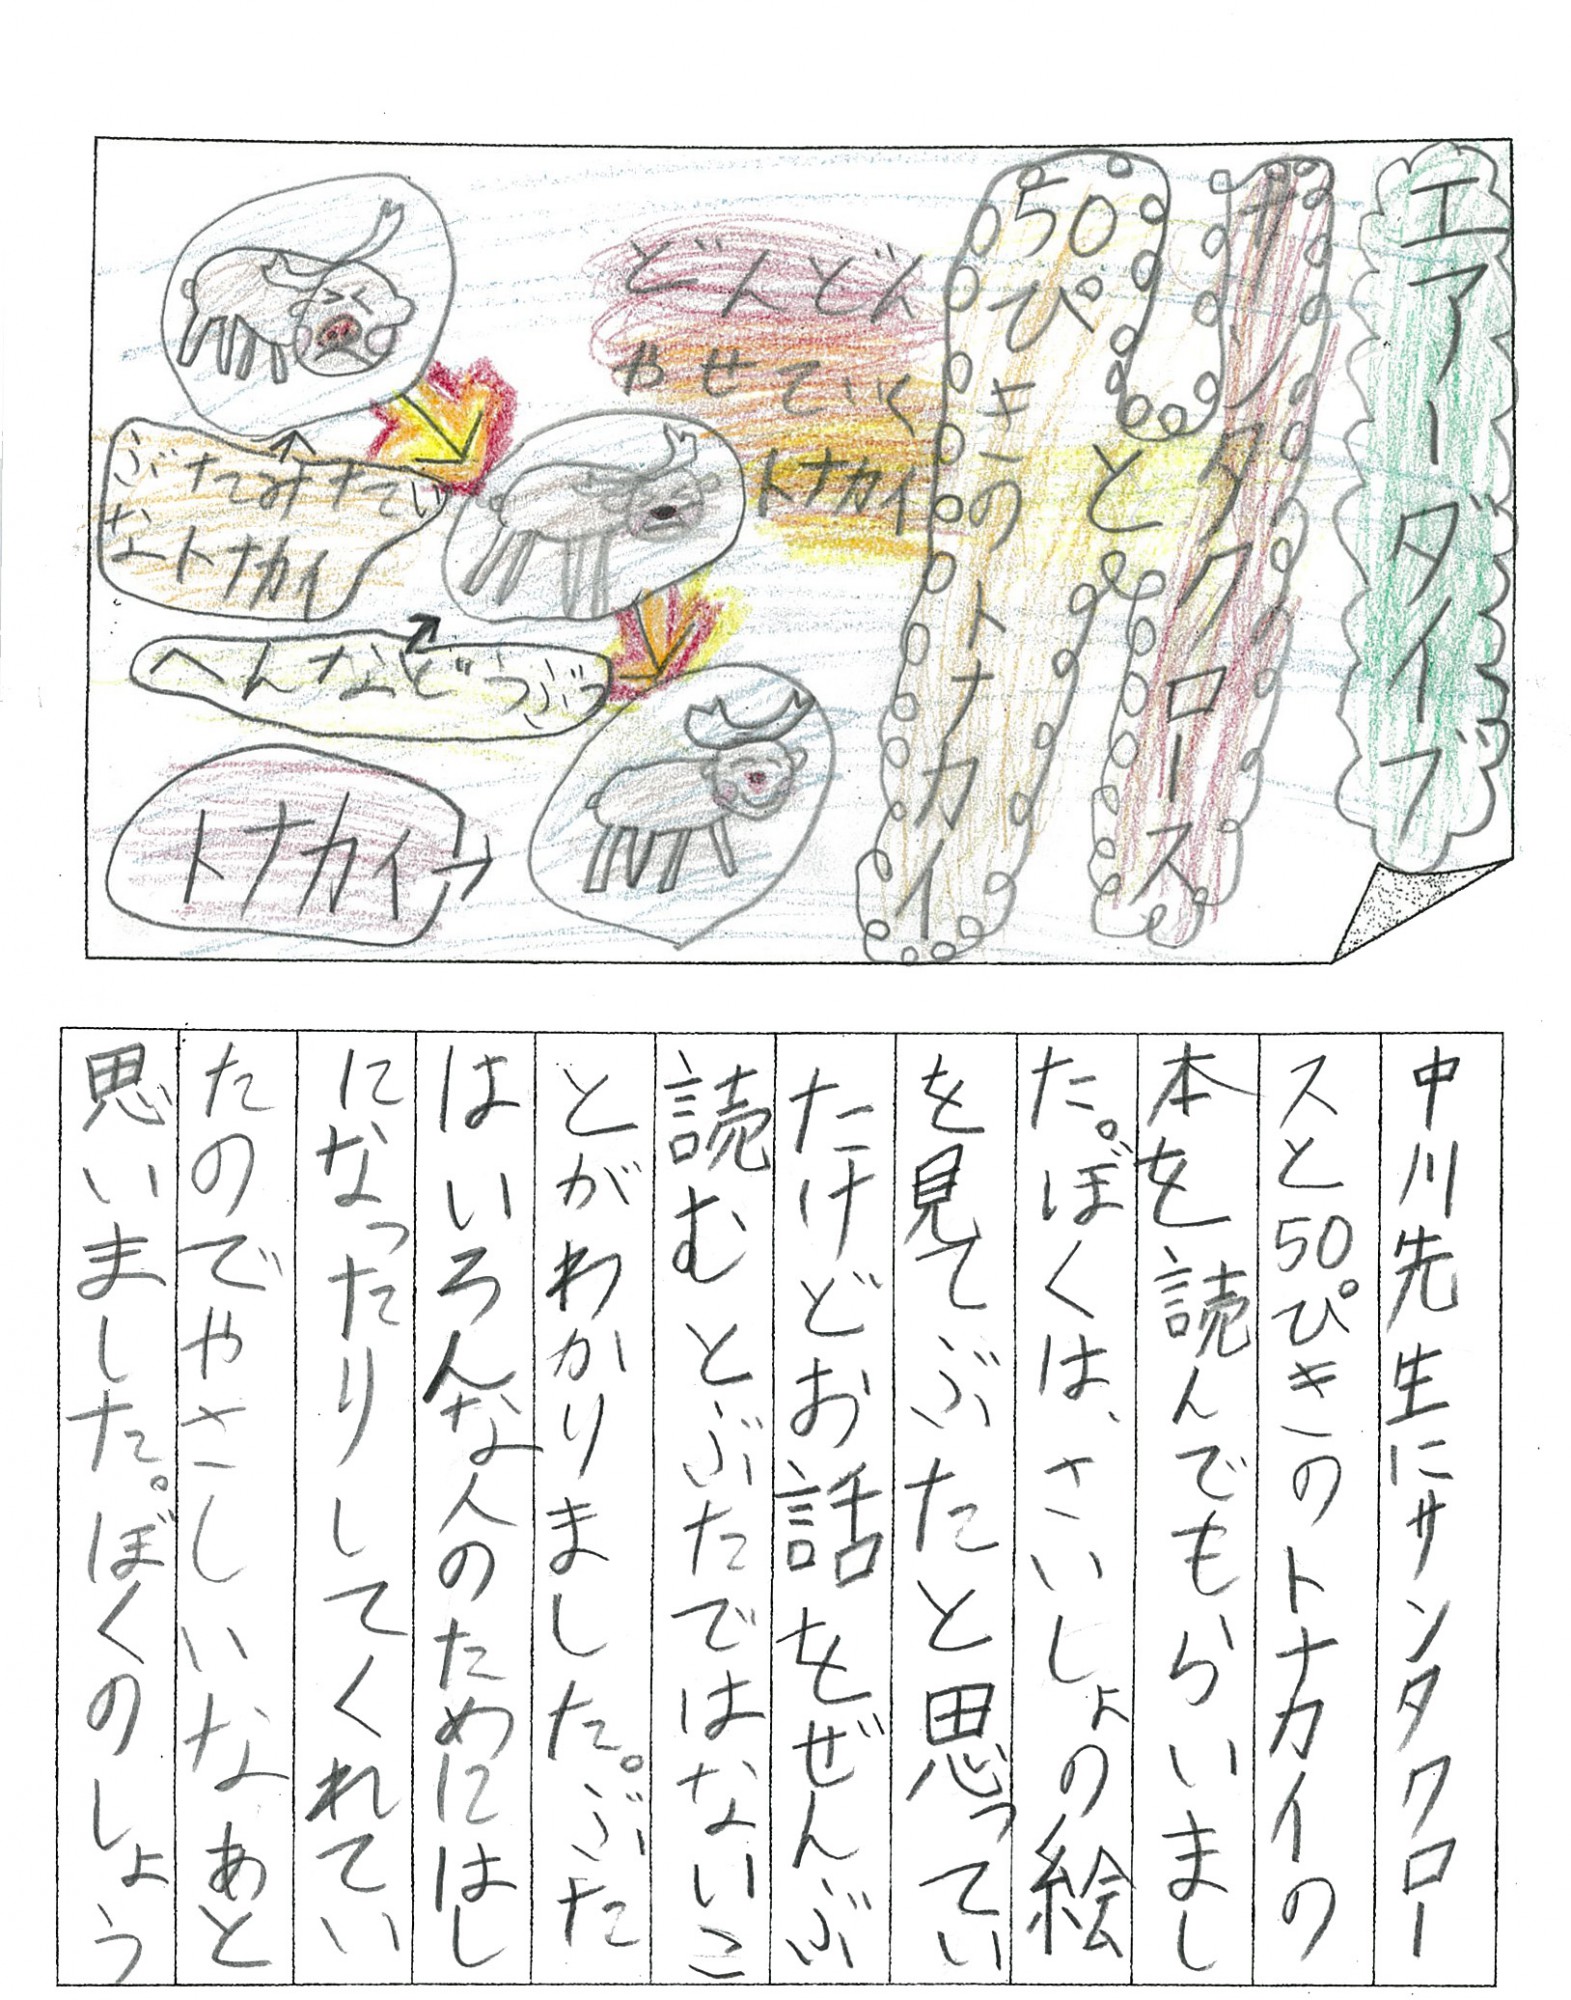 エアーダイブ
サンタクロース
と
50ぴきのトナカイ
どんどん
やせていく
トナカイ
ぶたみたい
なトナカイ
へんなどうぶつ
トナカイ
中川先生にサンタクロー
スと50ぴきのトナカイの
本を読んでもらいまし
た。ぼくは、さいしょの絵
を見てぶたと思ってい
たけどお話をぜんぶ
読むとぶたではないこ
とがわかりました。ぶた
はいろんな人のためにはし
になったりしてくれてい
たのでやさしいなあと
思いました。ぼくのしょう